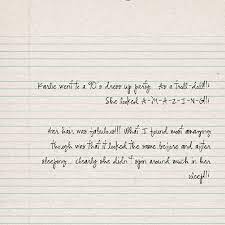 Karlie went to a 90's dress up party. As a troll-doll!!!
She looked A-M-A-Z-I-N-G!!
Her hair was fabulous!!! What I found most amazing
though was that it looked the same before and after
sleeping... clearly she didn't spin around much in her
sleep!!!